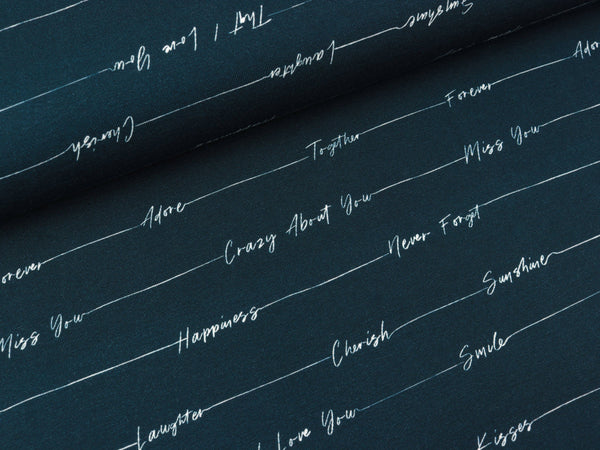 That I Love You
Laughter Sunshine
Cherish
Adore Together Forever Ador
orever Crazy About You Miss You
Miss You Happiness Never Forget
Laughter Cherish Sunshine
I Love You Smile
Kisses